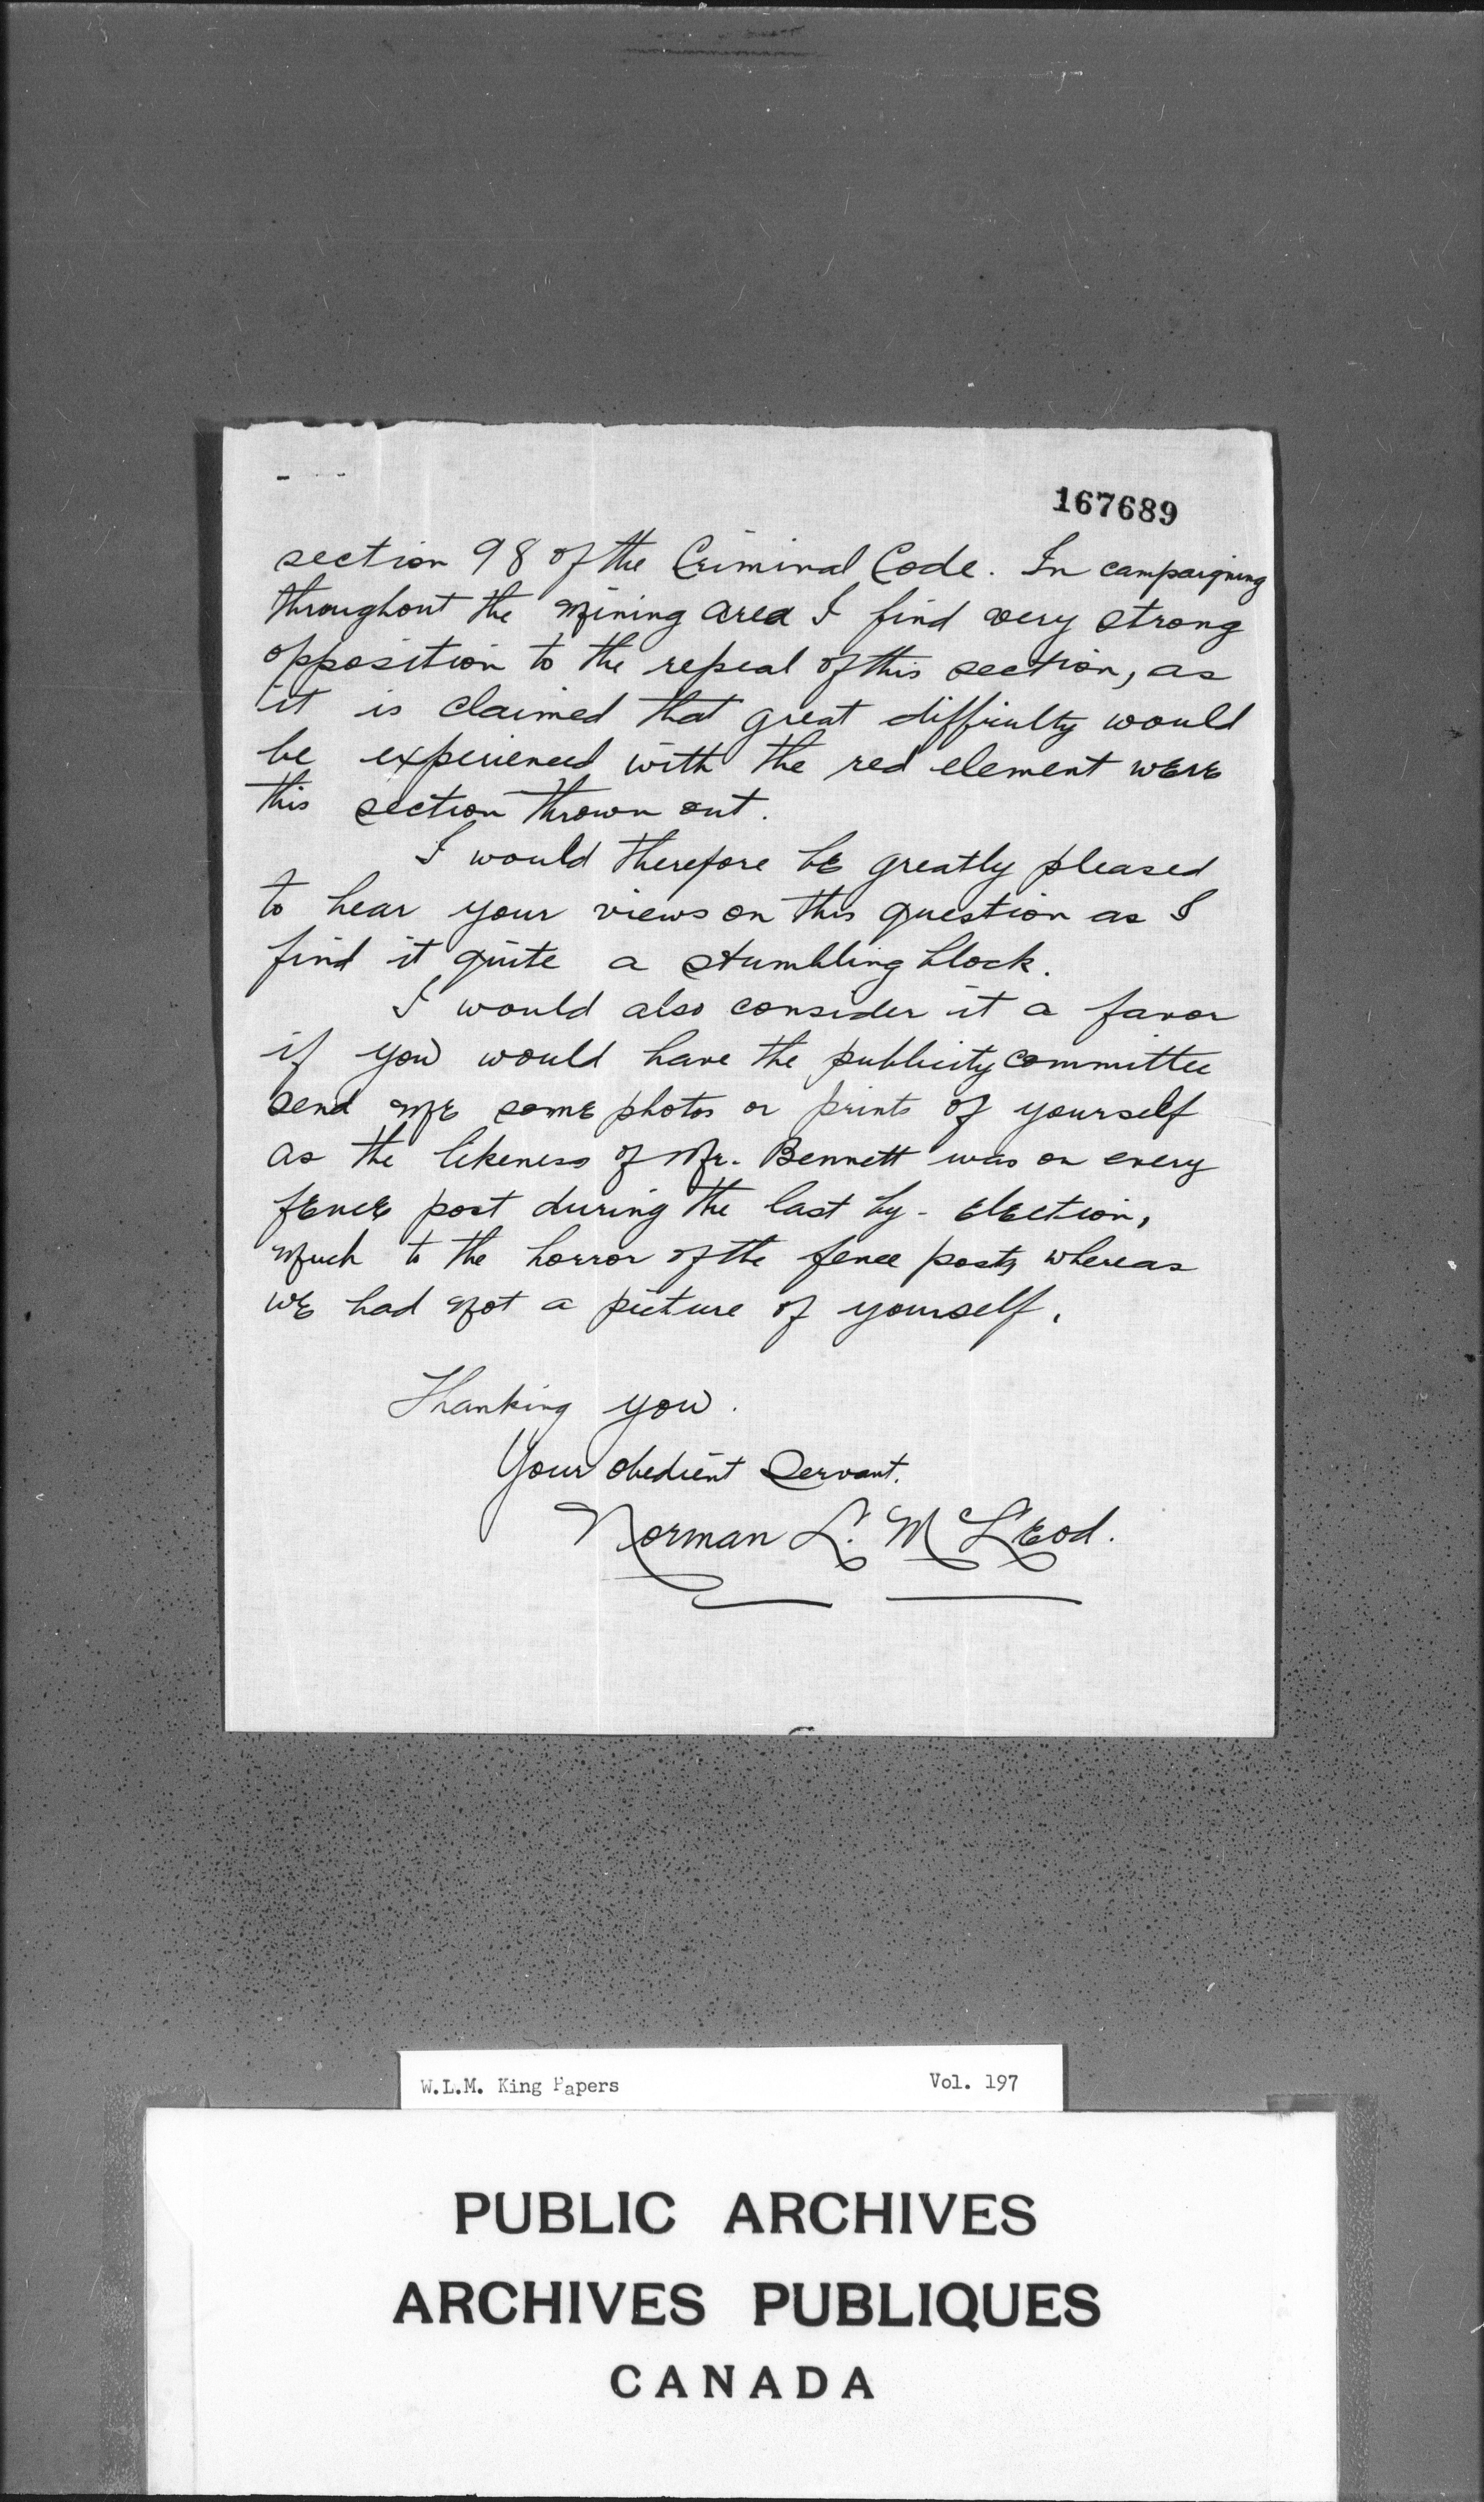 167689
section 98 of the Criminal Code. In campaigning
throughout the mining area I find very strong
opposition to the repeal of this section, as
it is claimed that great difficulty would
be experienced with the red element were
this section thrown out.
I would therefore be greatly pleased
to hear your views on this question as I
find it quite a stumbling block.
I would also consider it a favor
if you would have the publicity committee
send me some photos or prints of yourself
as the likeness of Mr. Bennett was on every
fence post during the last by-election,
much to the horror of the fence posts, whereas
we had not a picture of yourself.
Thanking you.
Your obedient Servant.
Norman L. McLeod.
W.L.M. King Papers Vol. 197
PUBLIC ARCHIVES
ARCHIVES PUBLIQUES
CANADA